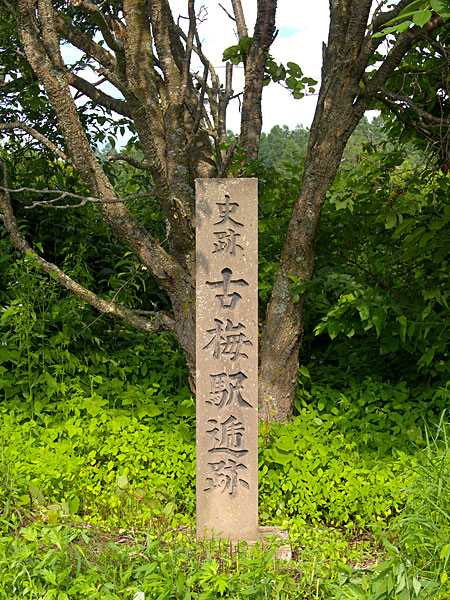 史跡 古梅駅逓跡